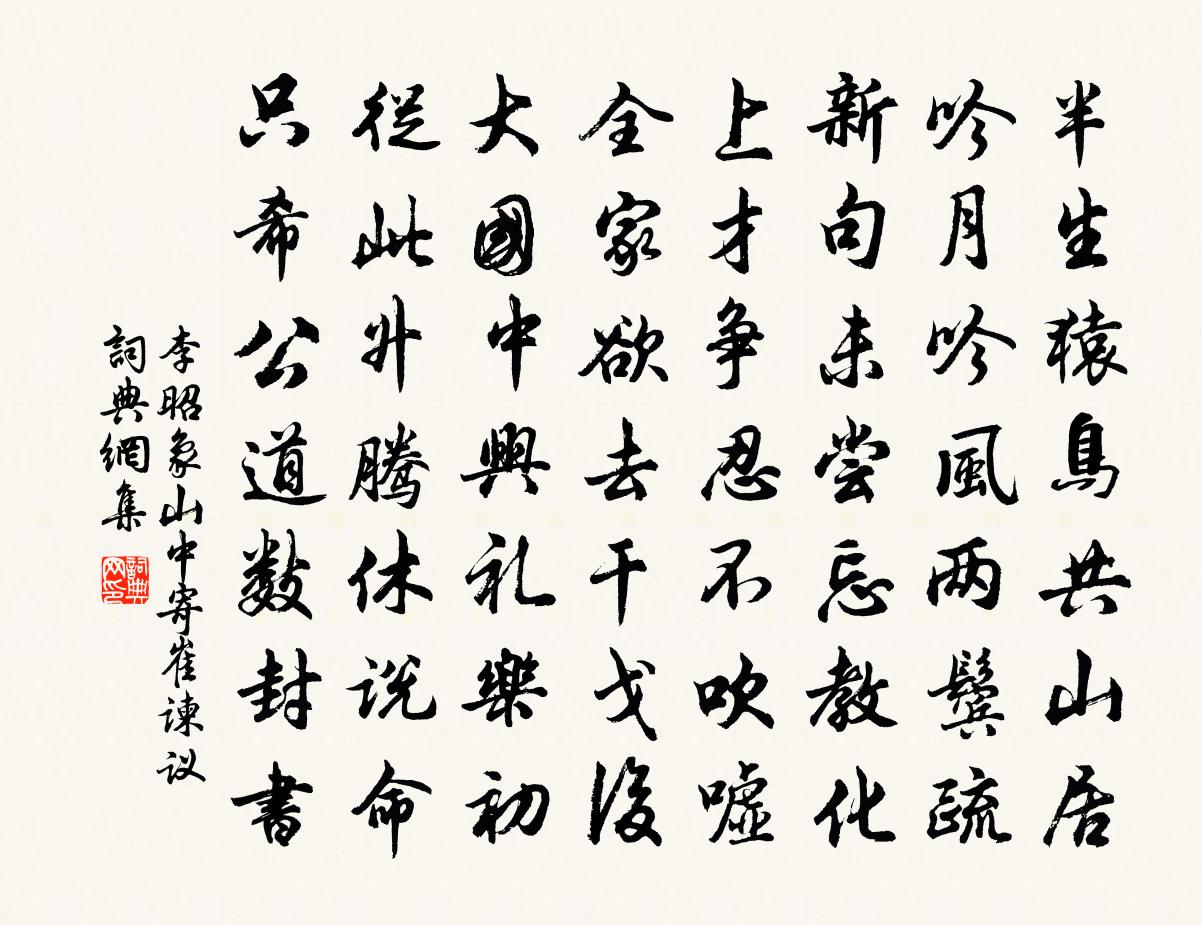 半生猿鳥共山居
吟月吟風两鬢疏
新句未尝忘教化
上才争忍不吹嘘
全家欲去干戈後
大國中興礼樂初
從此升騰休说命
只希公道數封書
李昭象山中寄崔諫议
詞典網集
詞典网印